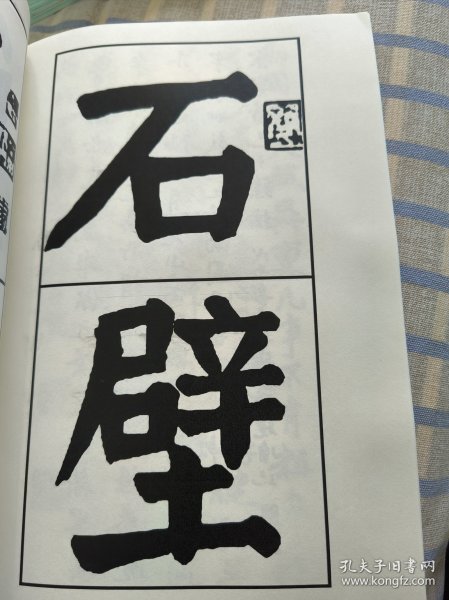 石
壁
孔夫子旧书网
www.kongfz.com